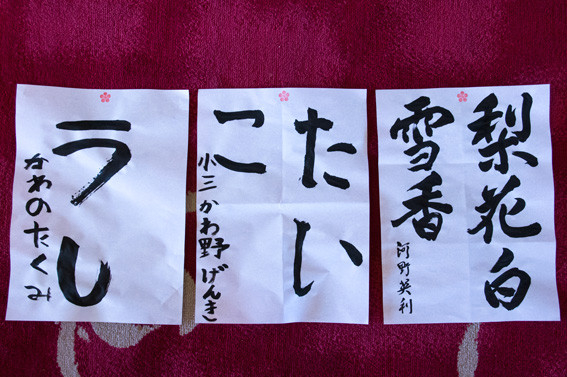 梨花白
雪香
河野英利
たい
こ
小三 かわ野 げんき
うし
かわのたくみ